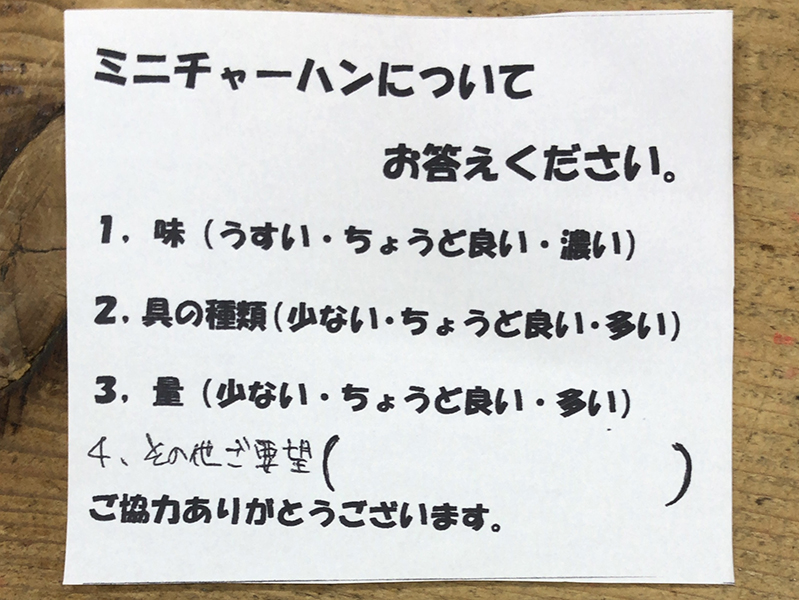 ミニチャーハンについて
お答えください。
1. 味（うすい・ちょうど良い・濃い）
2. 具の種類（少ない・ちょうど良い・多い）
3. 量（少ない・ちょうど良い・多い）
4、その他ご要望（　　　）
ご協力ありがとうございます。